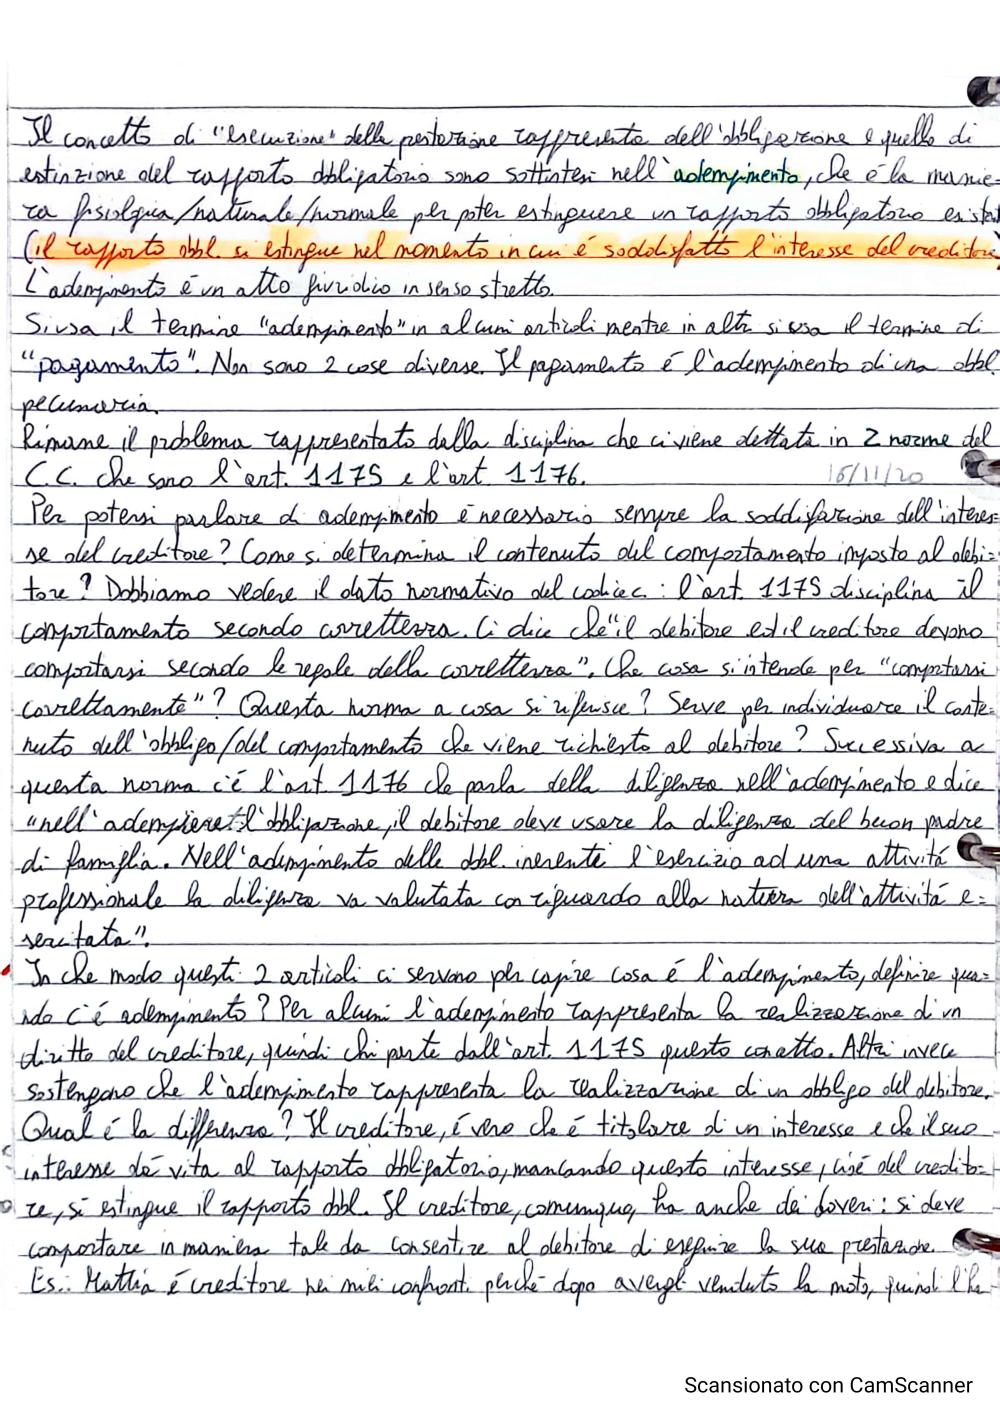 Il concetto di "esecuzione" della prestazione rappresentata dell'obbligazione e quello di
estinzione del rapporto obbligatorio sono sottintesi nell'adempimento, che é la manie=
ra fisiologica/naturale/normale per poter estinguere un rapporto obbligatorio esistent
(il rapporto obbl. si estingue nel momento in cui é soddisfatto l'interesse del creditore)
L'adempimento é un atto giuridico in senso stretto.
Si usa il termine "adempimento" in alcuni articoli mentre in altri si usa il termine di
"pagamento". Non sono 2 cose diverse. Il pagamento é l'adempimento di una obbl.
pecuniaria.
Rimane il problema rappresentato dalla disciplina che ci viene dettata in 2 norme del
C.C. che sono l'art. 1175 e l'art. 1176. 16/11/20
Per potersi parlare di adempimento é necessario sempre la soddisfazione dell'interes=
se del creditore? Come si determina il contenuto del comportamento imposto al debi=
tore? Dobbiamo vedere il dato normativo del codice: l'art. 1175 disciplina il
comportamento secondo correttezza. Ci dice che "il debitore ed il creditore devono
comportarsi secondo le regole della correttezza". Che cosa si intende per "comportarsi
correttamente"? Questa norma a cosa si riferisce? Serve per individuare il conte=
nuto dell'obbligo/del comportamento che viene richiesto al debitore? Successiva a
questa norma c'é l'art 1176 che parla della diligenza nell'adempimento e dice
"nell'adempiere l'obbligazione, il debitore deve usare la diligenza del buon padre
di famiglia. Nell'adempimento delle obbl. inerenti l'esercizio ad una attività
professionale la diligenza va valutata con riguardo alla natura dell'attività e=
sercitata".
In che modo questi 2 articoli ci servono per capire cosa é l'adempimento, definire qua=
ndo c'é adempimento? Per alcuni l'adempimento rappresenta la realizzazione di un
diritto del creditore, quindi chi parte dall'art. 1175 questo concetto. Altri invece
sostengono che l'adempimento rappresenta la realizzazione di un obbligo del debitore.
Qual é la differenza? Il creditore, é vero che é titolare di un interesse e che il suo
interesse dà vita al rapporto obbligatorio, mancando questo interesse, cioé del credito=
re, si estingue il rapporto obbl. Il creditore, comunque, ha anche dei doveri: si deve
comportare in maniera tale da consentire al debitore di eseguire la sua prestazione.
Es.: Mattia é creditore nei miei confronti perché dopo avergli venduto la moto, quindi l'ha
Scansionato con CamScanner